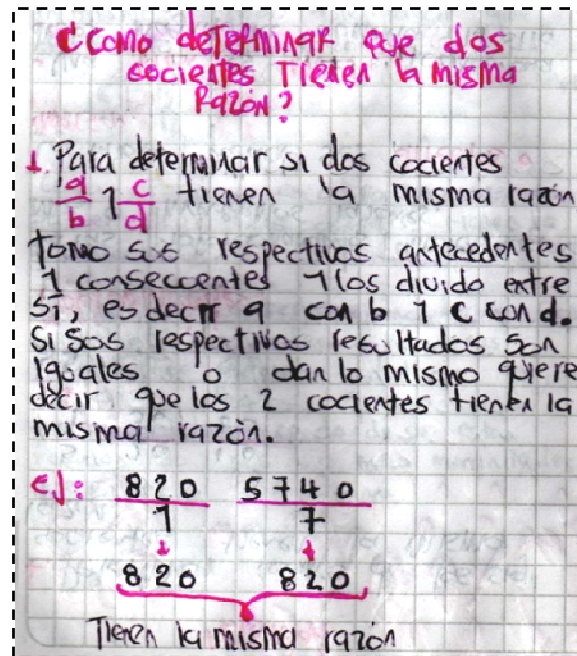 ¿Como determinar que dos
cocientes Tienen la misma
Razón?
1. Para determinar si dos cocientes
a/b y c/d tienen la misma razón
tomo sus respectivos antecedentes
y consecuentes y los divido entre
sí, es decir a con b y c con d.
Si sus respectivos resultados son
iguales o dan lo mismo quiere
decir que los 2 cocientes tienen la
misma razón.
ej: 820/1 5740/7
820 820
Tienen la misma razón